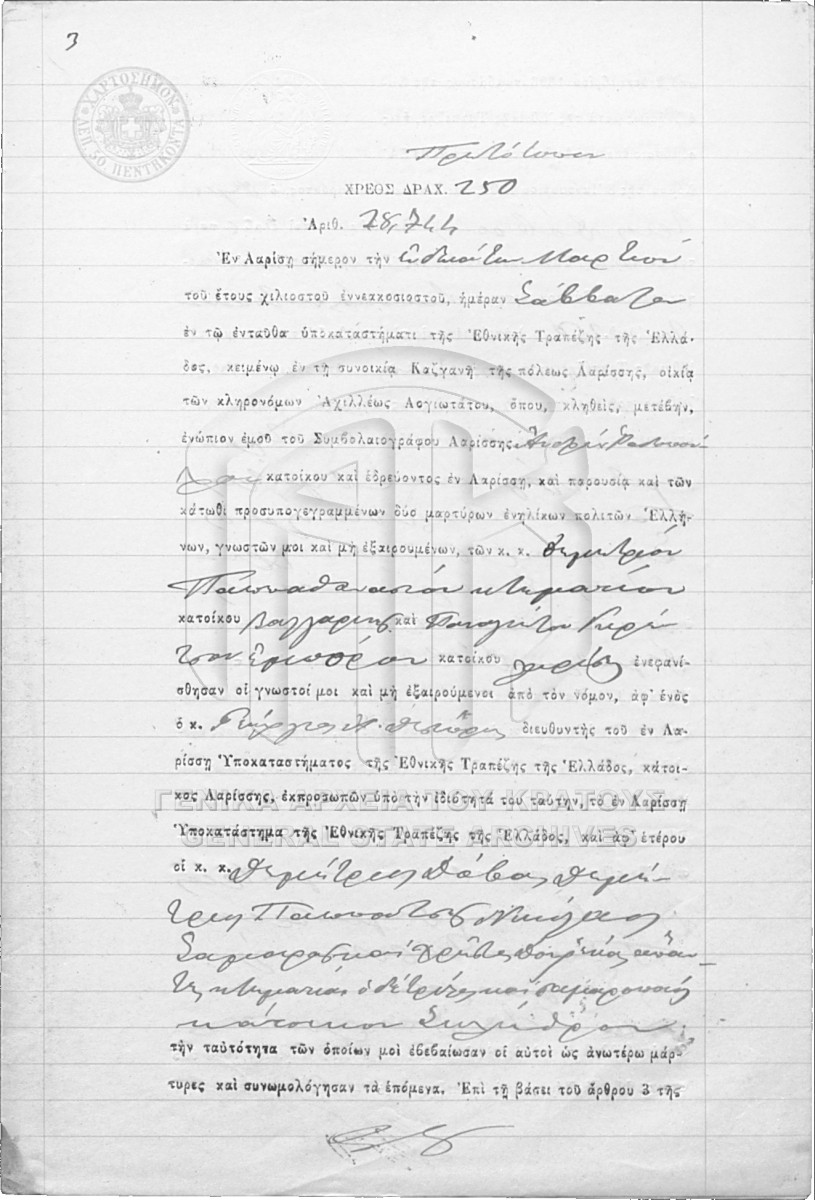 3
ΧΑΡΤΟΣΗΜΟΝ
ΛΕΠ. 50. ΠΕΝΤΗΚΟΝΤΑ
Πρωτότυπον
ΧΡΕΟΣ ΔΡΑΧ. 250
Ἀριθ. 28,744
Ἐν Λαρίσῃ σήμερον τὴν Μαρτίου
τοῦ ἔτους χιλιοστοῦ ἐννεακοσιοστοῦ, ἡμέραν Σάββατον
ἐν τῷ ἐνταῦθα ὑποκαταστήματι τῆς Ἐθνικῆς Τραπέζης τῆς Ἑλλά-
δος, κειμένῳ ἐν τῇ συνοικίᾳ Καζγανῆ τῆς πόλεως Λαρίσσης, οἰκίᾳ
τῶν κληρονόμων Ἀχιλλέως Λογιωτάτου, ὅπου, κληθεὶς, μετέβην,
ἐνώπιον ἐμοῦ τοῦ Συμβολαιογράφου Λαρίσσης
κατοίκου καὶ ἑδρεύοντος ἐν Λαρίσσῃ, καὶ παρουσίᾳ καὶ τῶν
κάτωθι προσυπογεγραμμένων δύο μαρτύρων ἐνηλίκων πολιτῶν Ἑλλή-
νων, γνωστῶν μοι καὶ μὴ ἐξαιρουμένων, τῶν κ. κ. Δημητρίου
Παπααθανασίου κτηματίου
κατοίκου καὶ Παναγιώτου
ἐμπόρου κατοίκου Λαρίσης ἐνεφανί-
σθησαν οἱ γνωστοί μοι καὶ μὴ ἐξαιρούμενοι ἀπὸ τὸν νόμον, ἀφ' ἑνὸς
ὁ κ. Γεώργιος διευθυντὴς τοῦ ἐν Λα-
ρίσσῃ Ὑποκαταστήματος τῆς Ἐθνικῆς Τραπέζης τῆς Ἑλλάδος, κάτοι-
κος Λαρίσσης, ἐκπροσωπῶν ὑπὸ τὴν ἰδιότητά του ταύτην, τὸ ἐν Λαρίσσῃ
ΓΕΝΙΚΑ ΑΡΧΕΙΑ ΤΟΥ ΚΡΑΤΟΥΣ
Ὑποκατάστημα τῆς Ἐθνικῆς Τραπέζης τῆς Ἑλλάδος, καὶ ἀφ' ἑτέρου
GENERAL STATE ARCHIVES
οἱ κ. κ. Δημήτριος Δημή-
τριος Νικόλαος
καὶ Χρῆστος ἅπαν-
τες κτηματίαι ὁ δὲ τρίτος καὶ
κάτοικοι
τὴν ταὐτότητα τῶν ὁποίων μοὶ ἐβεβαίωσαν οἱ αὐτοὶ ὡς ἀνωτέρω μάρ-
τυρες καὶ συνωμολόγησαν τὰ ἑπόμενα. Ἐπὶ τῇ βάσει τοῦ ἄρθρου 3 τῆς